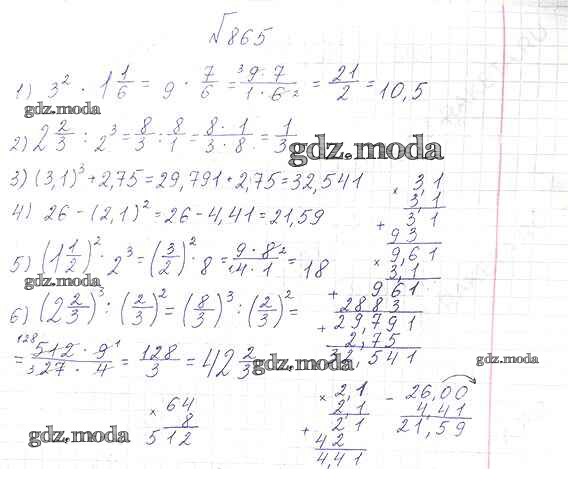 №865
1) 3² · 1 1/6 = 9 · 7/6 = ³9 · 7 / 1 · 6₂ = 21/2 = 10,5
gdz.moda
2) 2 2/3 : 2³ = 8/3 : 8/1 = 8 · 1 / 3 · 8 = 1/3
gdz.moda
3) (3,1)³ + 2,75 = 29,791 + 2,75 = 32,541
4) 26 − (2,1)² = 26 − 4,41 = 21,59
5) (1 1/2)² · 2³ = (3/2)² · 8 = 9 · 8² / ₁4 · 1 = 18
gdz.moda
6) (2 2/3)³ : (2/3)² = (8/3)³ : (2/3)² =
= ¹²⁸512 · 9¹ / ₃27 · 4 = 128/3 = 42 2/3
gdz.moda
gdz.moda
× 3,1
3,1
3 1
+ 9 3
9,61
× 3,1
9 6 1
+ 2 8 8 3
29,791
+ 2,75
32,541
× 64
8
512
gdz.moda
× 2,1
2,1
2 1
+ 4 2
4,41
− 26,00
4,41
21,59
gdz.moda